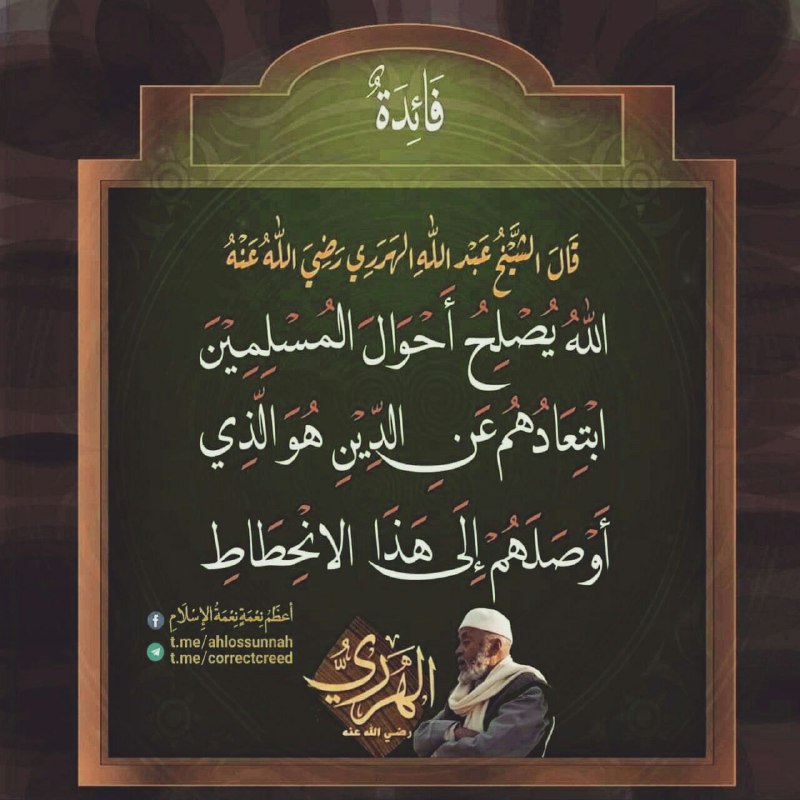 فَائِدَةٌ
قَالَ الشَّيْخُ عَبْدُ اللهِ الهَرَرِي رَضِيَ اللهُ عَنْهُ
اللهُ يُصْلِحُ أَحْوَالَ الْمُسْلِمِيْنَ
ابْتِعَادُهُمْ عَنِ الدِّيْنِ هُوَ الَّذِي
أَوْصَلَهُمْ إِلَى هَذَا الانْحِطَاطِ
أعظَمُ نِعْمَةٍ نِعْمَةُ الإِسْلَامِ
t.me/ahlossunnah
t.me/correctcreed
الهَرَرِيُّ
رضي الله عنه